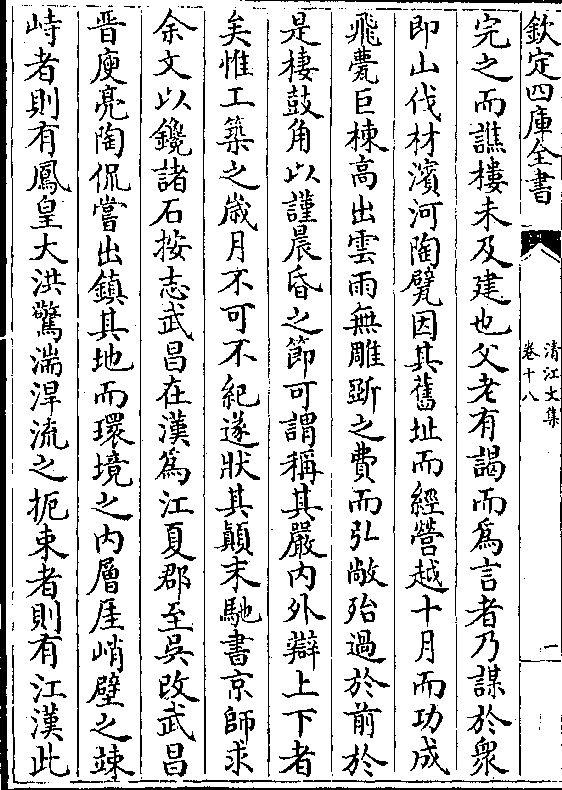 欽定四庫全書
清江文集
卷十八
一
完之而譙樓未及建也父老有謁而為言者乃謀於衆
即山伐材濱河陶甓因其舊址而經營越十月而功成
飛甍巨棟高出雲雨無雕斲之費而弘敞殆過於前於
是棲鼓角以謹晨昏之節可謂稱其嚴內外辯上下者
矣惟工築之歲月不可不紀遂狀其顛末馳書京師求
余文以鑱諸石按志武昌在漢為江夏郡至吳改武昌
晉庾亮陶侃嘗出鎮其地而環境之內層厓峭壁之竦
峙者則有鳳皇大洪驚湍淠流之扼束者則有江漢此